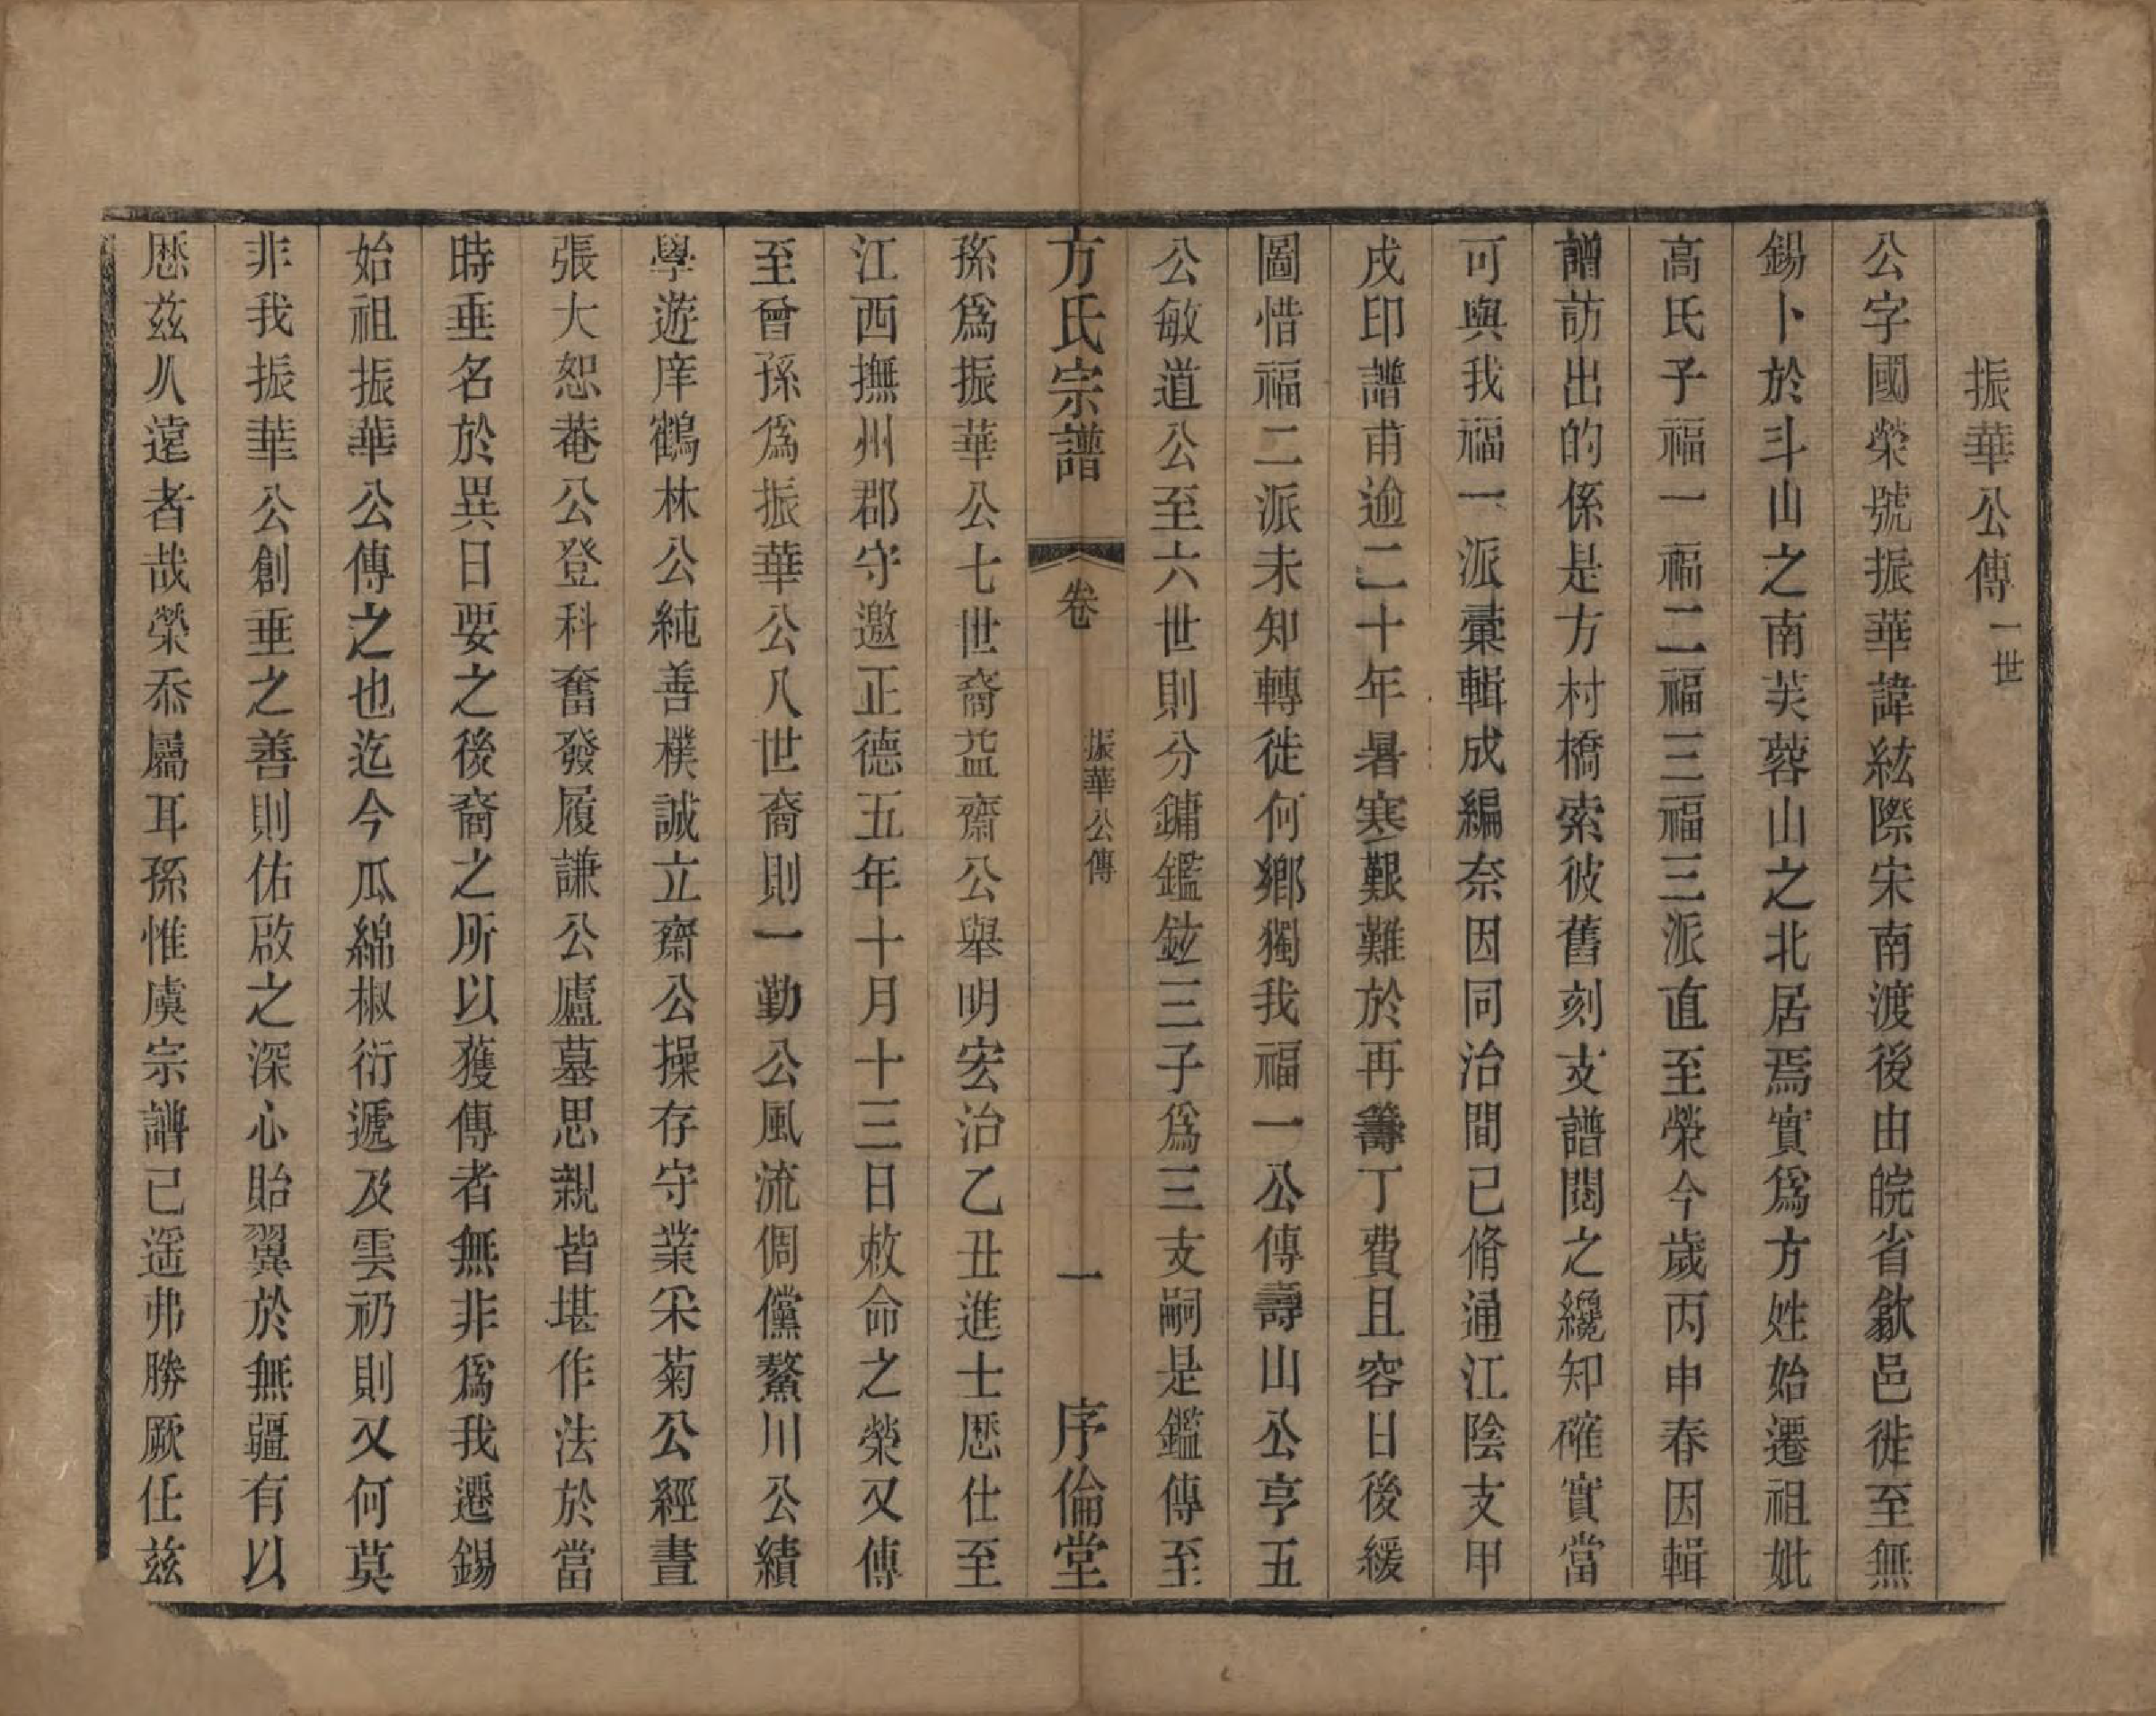 振華公傳一世
公字國榮號振華諱紘際宋南渡後由皖省歙邑徙至無
錫卜於斗山之南芙蓉山之北居焉實爲方姓始遷祖妣
高氏子福一福二福三福三派直至榮今歲丙申春因輯
譜訪出的係是方村橋索彼舊刻支譜閱之纔知確實當
可與我福一派彙輯成編奈因同治間已脩通江陰支甲
戌印譜甫逾二十年暑寒艱難於再籌丁費且容日後緩
圖惜福二派未知轉徙何鄉獨我福一公傳壽山公亨五
公敏道公至六世則分鏞鑑鉉三子爲三支嗣是鑑傳至
方氏宗譜 卷 振華公傳 一 序倫堂
孫爲振華公七世裔益齋公舉明宏治乙丑進士歷仕至
江西撫州郡守邀正德五年十月十三日敕命之榮又傳
至曾孫爲振華公八世裔則一勤公風流倜儻鰲川公績
學遊庠鶴林公純善樸誠立齋公操存守業采菊公經晝
張大恕菴公登科奮發履謙公廬墓思親皆堪作法於當
時垂名於異日要之後裔之所以獲傳者無非爲我遷錫
始祖振華公傳之也迄今瓜綿椒衍遞及雲礽則又何莫
非我振華公創垂之善則佑啟之深心貽翼於無疆有以
歷兹乆遠者哉榮忝屬耳孫惟虞宗譜已遥弗勝厥任兹